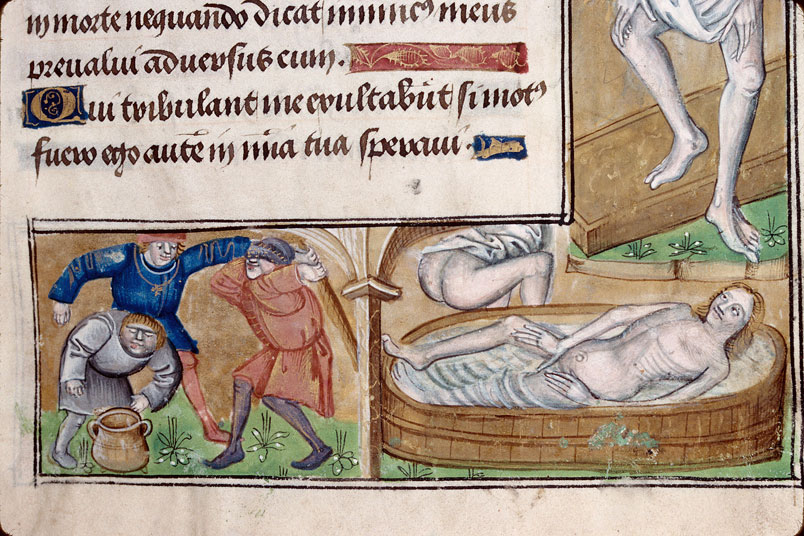 in morte nequando dicat inimicꝰ meus
preualui aduersus eum.
Qui tribulant me exultabūt si motꝰ
fuero ego autē in mīa tua speraui.